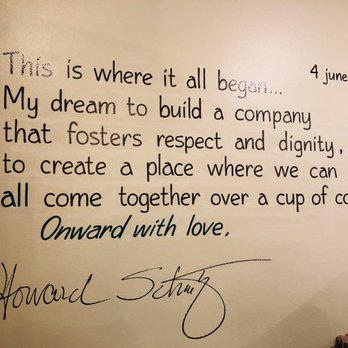 This is where it all began...
4 june
My dream to build a company
that fosters respect and dignity,
to create a place where we can
all come together over a cup of co
Onward with love.
Howard Schultz